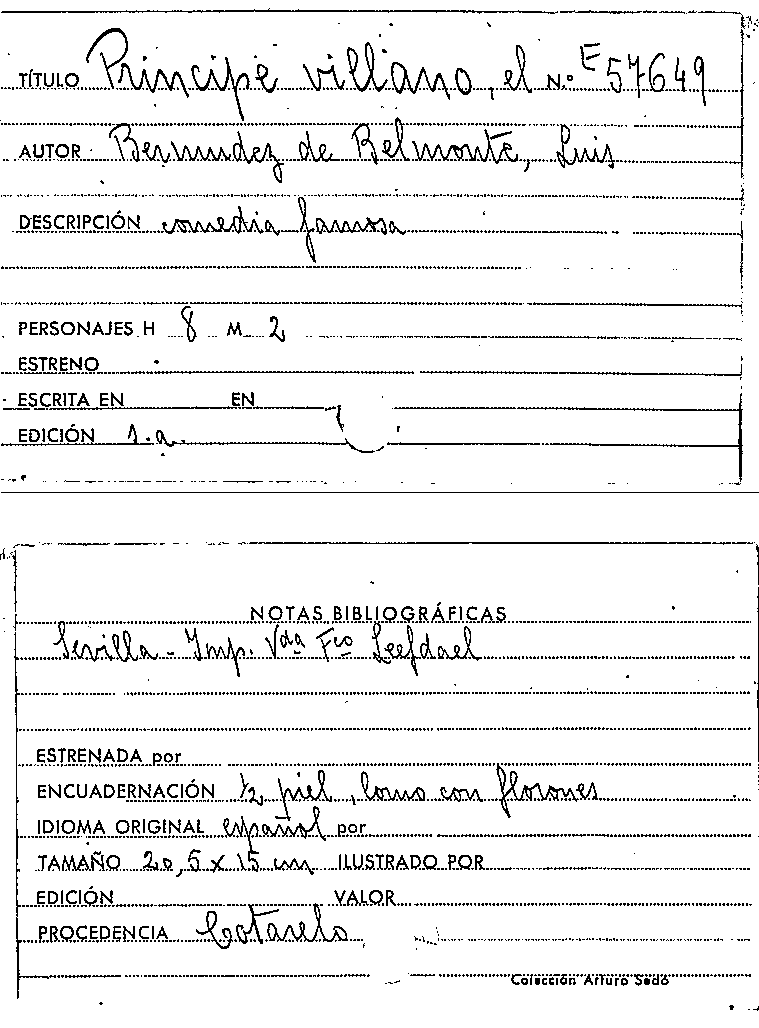 TÍTULO Príncipe villano, el N.º E 57649
AUTOR Bermudez de Belmonte, Luis
DESCRIPCIÓN comedia famosa
PERSONAJES H 8 M 2
ESTRENO
ESCRITA EN EN
EDICIÓN s.a.
NOTAS BIBLIOGRÁFICAS
Sevilla - Imp. Vda Fco Leefdael
ESTRENADA por
ENCUADERNACIÓN 1/2 piel, lomo con florones
IDIOMA ORIGINAL español por
TAMAÑO 20,5 x 15 cm ILUSTRADO POR
EDICIÓN VALOR
PROCEDENCIA Cotarelo
Colección Arturo Sedó